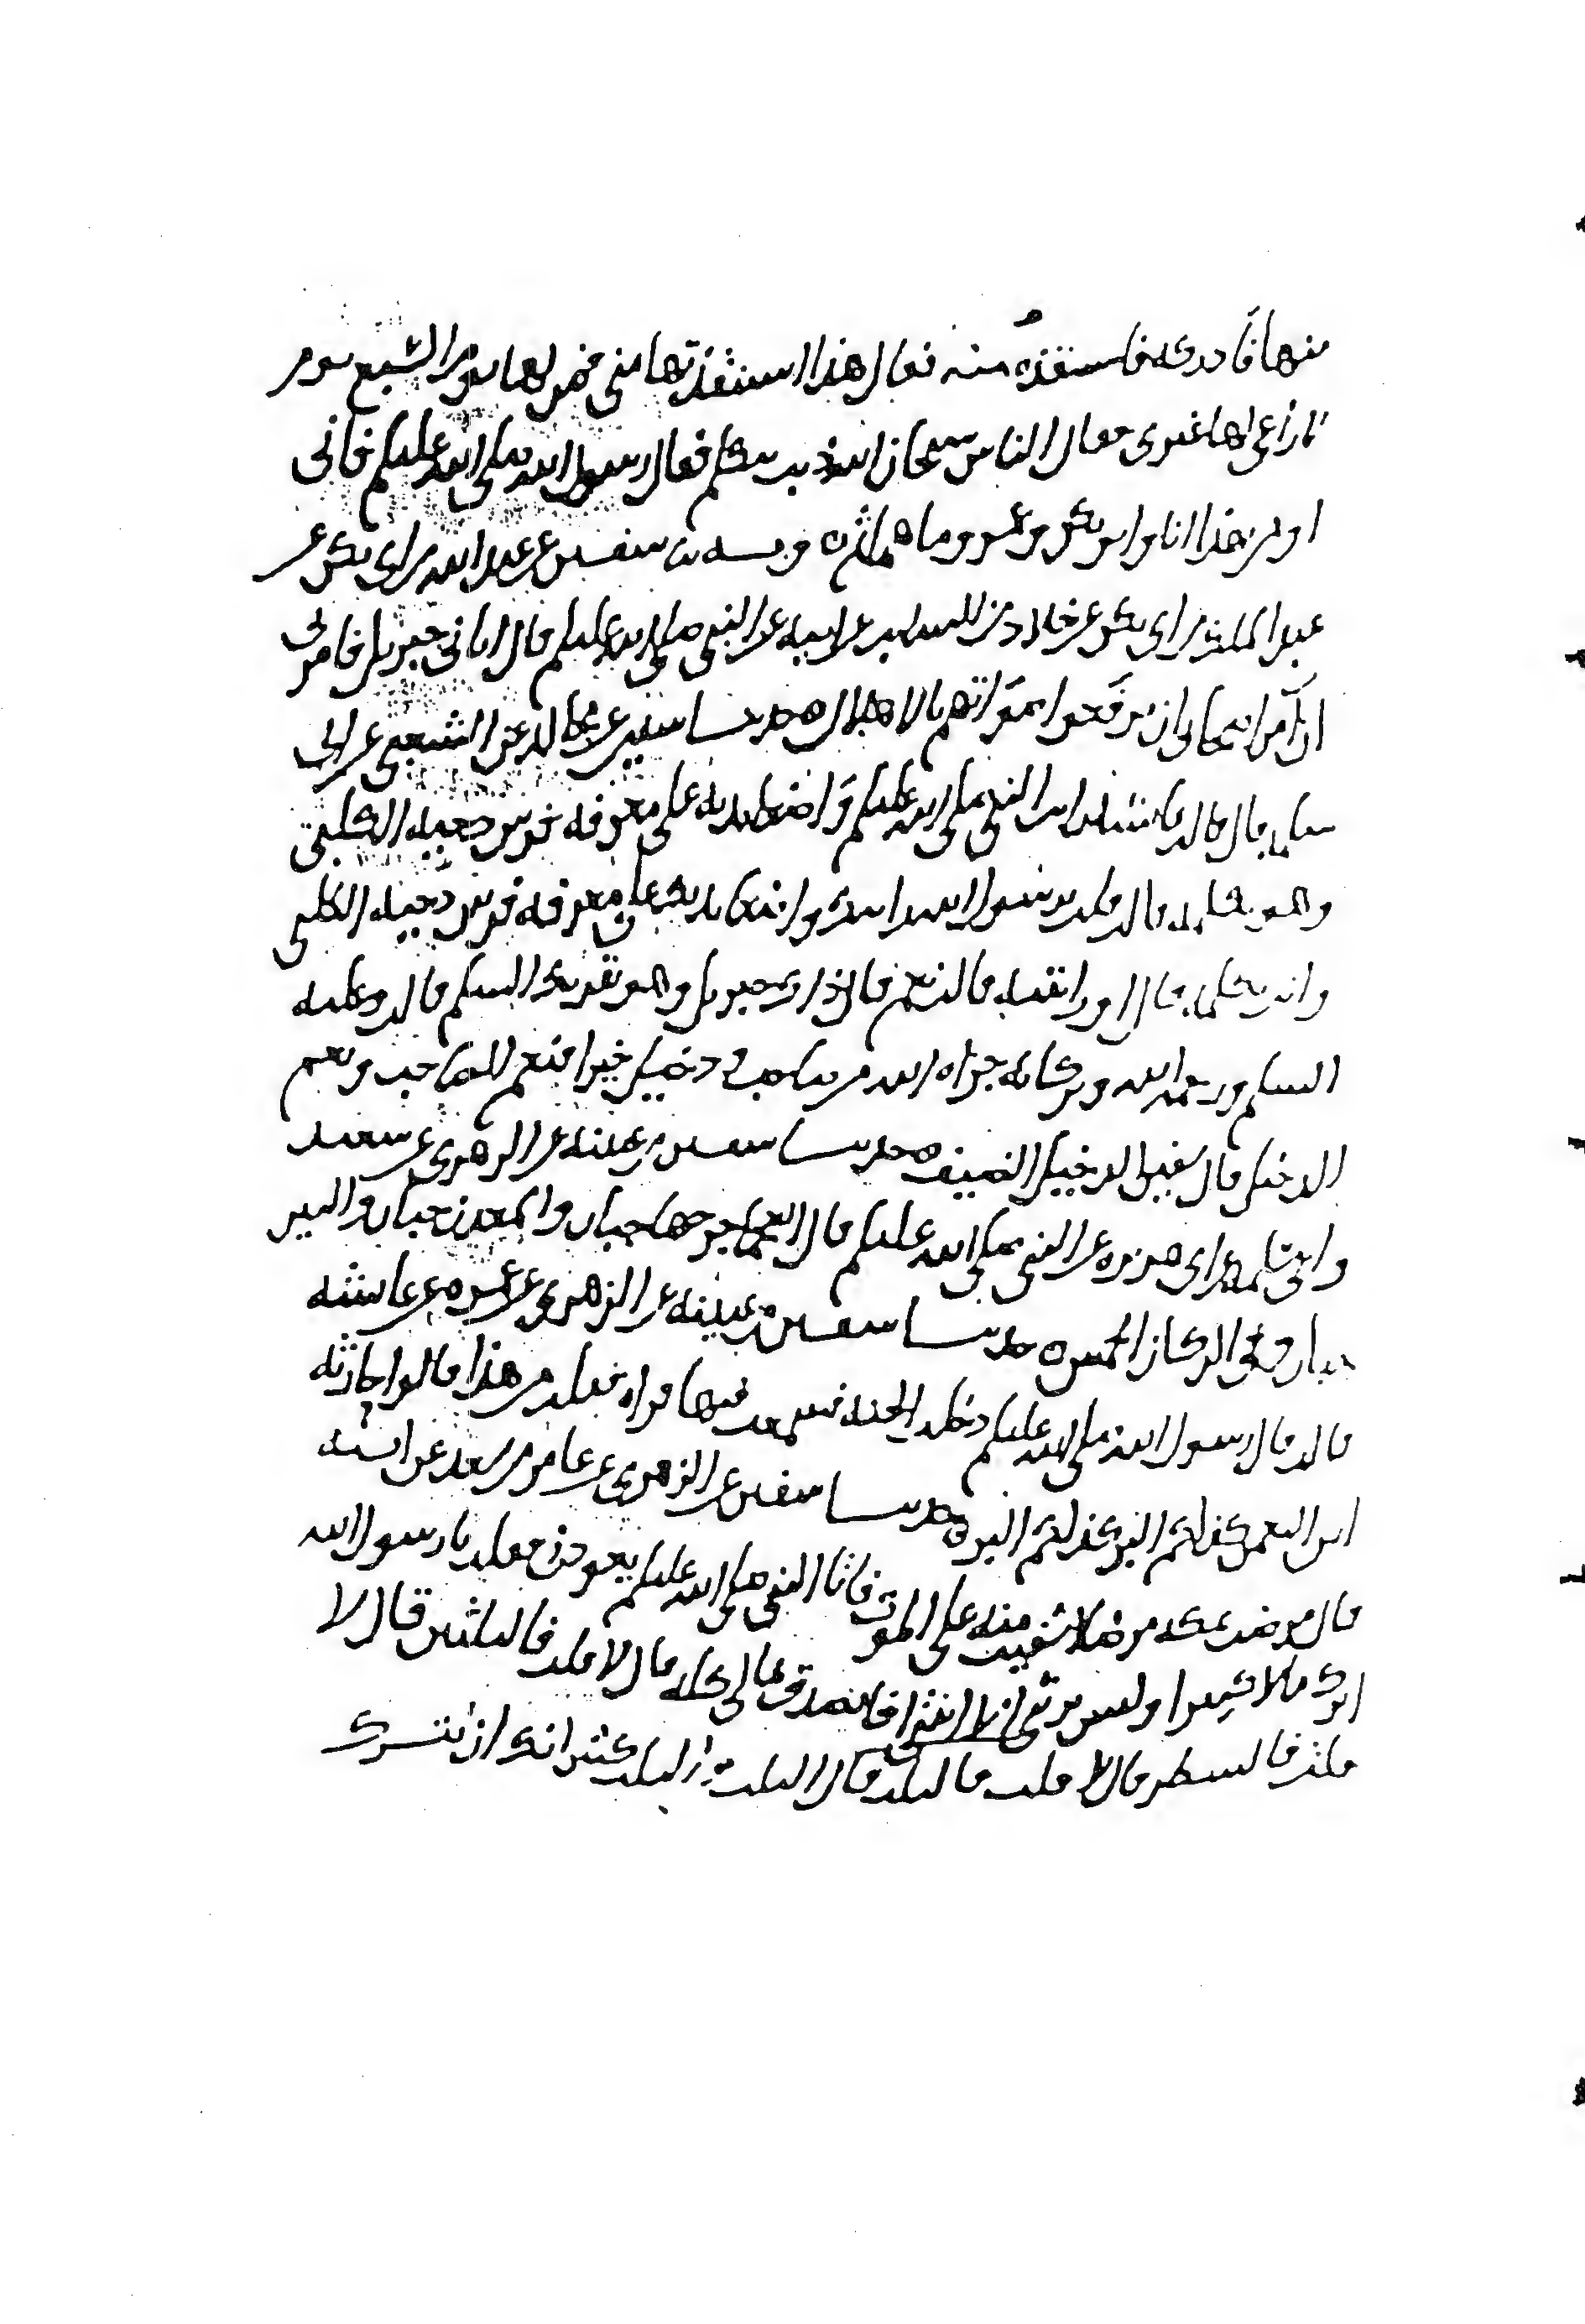 منها فادركه فاستنقذه منه فقال هذا استنقذتها مني فمن لها يوم السبع يوم
لا راعي لها غيري فقال الناس سبحان الله ذيب يتكلم فقال رسول الله صلى الله عليه وسلم فاني
اومن بهذا انا وابو بكر وعمر وما هما ثم ه وبه ثنا سفين عن عبد الله بن ابي بكر عن
عبد الملك بن ابي بكر عن خلاد بن السايب عن ابيه عن النبي صلى الله عليه وسلم قال اتاني جبريل فامرني
ان آمر اصحابي ان يرفعوا اصواتهم بالاهلال ه حدثنا سفين عن مجالد عن الشعبي عن ابي
سلمه قال قالت عائشة رايت النبي صلى الله عليه وسلم واضعا يديه على معرفه فرس دحيه الكلبي
وهو يكلمه قالت قلت يرسول الله رايتك واضعا يديك على معرفه فرس دحيه الكلبي
وانت تكلمه قال اورايتيه قالت نعم قال ذاك جبريل وهو يقريك السلم قالت وعليه
السلم ورحمه الله وبركاته جزاه الله من صاحب ودخيل خيرا فنعم الصاحب ونعم
الدخيل قال سفين الدخيل الضيف ه حدثنا سفين بن عيينه عن الزهري عن سعيد
وابي سلمه عن ابي هريره عن النبي صلى الله عليه وسلم قال العجما جرحها جبار والمعدن جبار والبير
جبار وفي الركاز الخمس ه حدثنا سفين بن عيينه عن الزهري عن عمره عن عايشه
قالت قال رسول الله صلى الله عليه وسلم دخلت الجنه فسمعت فيها قراه فقلت من هذا قالوا حارثه
ابن النعمن كذلكم البر كذلكم البر ه حدثنا سفين عن الزهري عن عامر بن سعد عن ابيه
قال مرضت بمكه مرضا اشفيت منه على الموت فاتا النبي صلى الله عليه وسلم يعودني فقلت يا رسول الله
ان لي مالا كثيرا وليس يرثني الا ابنتي افاتصدق بمالي كله قال لا قلت فالثلثين قال لا
قلت فالشطر قال لا قلت فالثلث قال الثلث والثلث كثير انك ان تترك